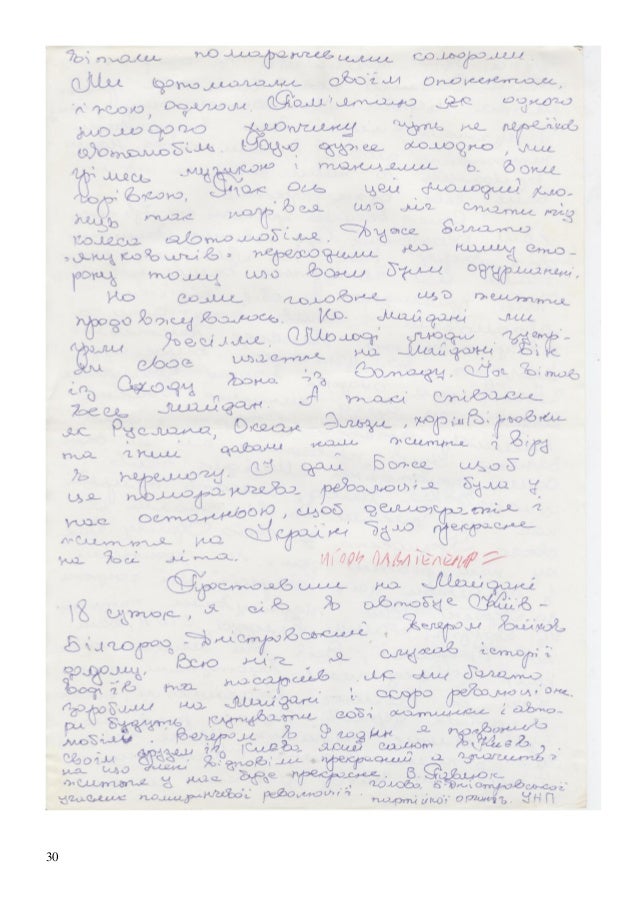 вітали помаранчевими кольорами.
Ми допомагали своїм опонентам,
їжою, одягом. Пам'ятаю як одного
молодого хлопчину чуть не переїхав
автомобіль. Було дуже холодно, ми
грілись музикою і танцями а вони
горівкою. Так ось цей молодий хло-
пець так нагрівся що ліг спати під
колеса автомобіля. Дуже багато
"януковичів" переходили на нашу сто-
рону тому що вони були одурманені.
Но саме головне що життя
продовжувалось. На майдані ми
грали весілля. Молоді люди зустрі-
ли своє щастя на Майдані Він
із Сходу вона із Западу. Їх вітав
весь майдан. А такі співаки
як Руслана, Океан Эльзи, хор ім Вірьовки
та інші давали нам життя і віру
в перемогу. І дай Боже щоб
це помаранчева революція була у
нас останньою, щоб демократія і
життя на Україні було прекрасне
на всі літа.
Простоявши на Майдані
18 суток, я сів в автобус Київ -
Білгород-Дністровський. Вечером виїхав
додому. Всю ніч я слухав історії
водіїв та пасарів як ми багато
заробили на Майдані і скоро революціоне-
ри будуть купувати собі хатинки і авто-
мобілі. Вечером в 9 годин я позвонив
своїм друзям із Києва який салют в Києві,
на що мені відповіли прекрасний а значить і
життя у нас буде прекрасне. В.
учасник помаранчевої революції. голова Б-Дністровської
партійної орган. УНП
30